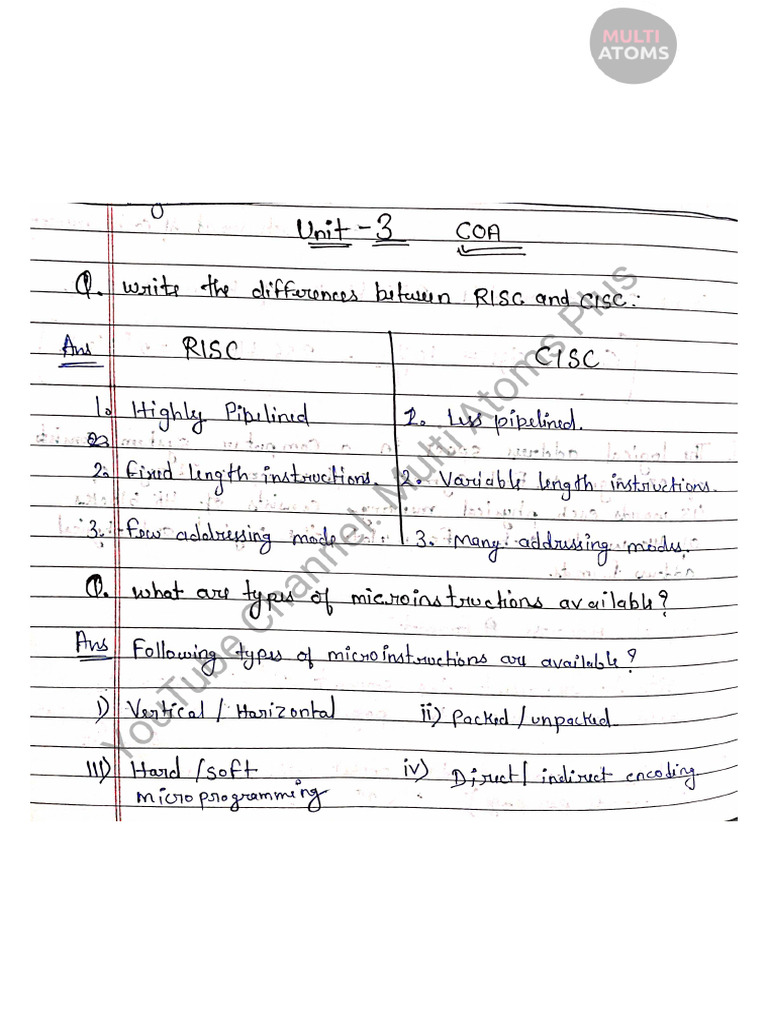 MULTI
ATOMS
Unit - 3 COA
Q. Write the differences between RISC and CISC:
Ans RISC CISC
1. Highly Pipelined 1. Less pipelined.
2. Fixed length instructions. 2. Variable length instructions.
3. Few addressing mode. 3. Many addressing modes.
Q. What are types of microinstructions available?
Ans Following types of microinstructions are available?
i) Vertical / Harizontal ii) Packed / unpacked
III) Hard / soft iv) Direct / indirect encoding
microprogramming
YouTube Channel: Multi Atoms Plus